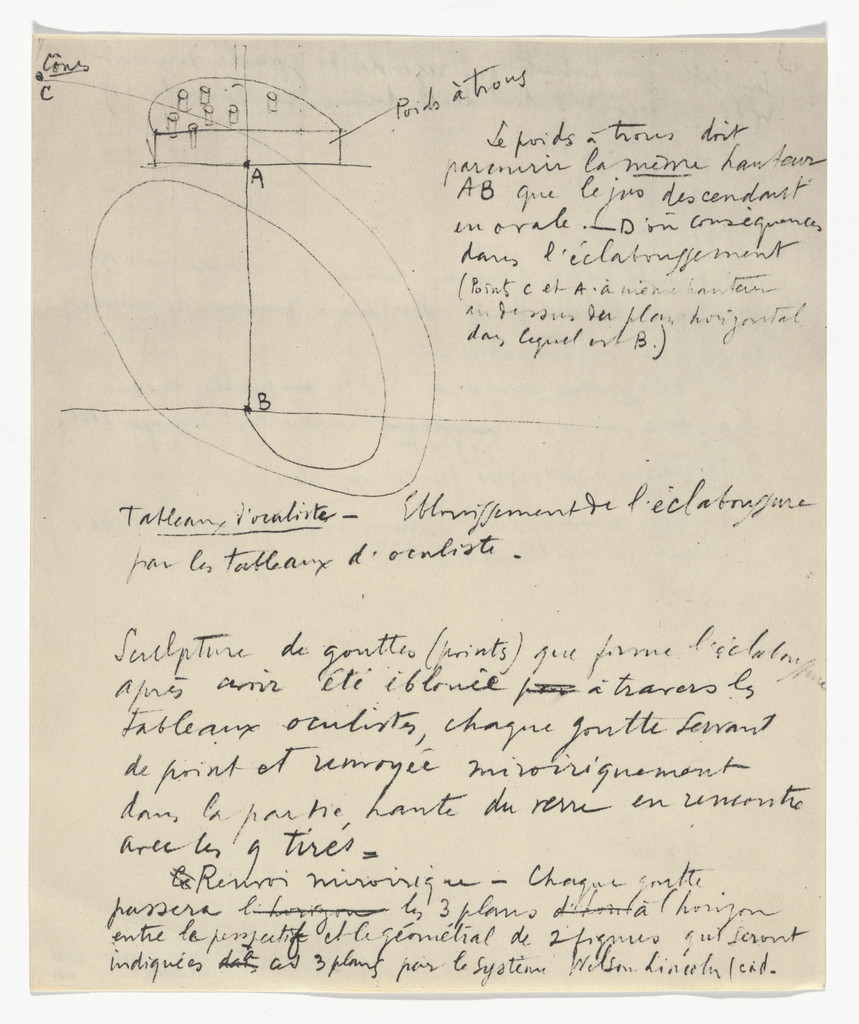 Cônes
C
Poids à trous
A
B
Le poids à trous doit
parcourir la même hauteur
AB que le jus descendant
en ovale. — D'où conséquences
dans l'éclaboussement
(Points C et A à même hauteur
au dessus du plan horizontal
dans lequel est B.)
Tableaux d'oculistes — Eblouissement de l'éclaboussure
par les tableaux d'oculiste.
Sculpture de gouttes (points) que forme l'éclaboussure
après avoir été éblouie par à travers les
tableaux oculistes, chaque goutte servant
de point et renvoyée miroiriquement
dans la partie haute du verre en rencontre
avec les 9 tirés =
Renvoi miroirique — Chaque goutte
passera l'horizon les 3 plans à l'horizon
entre le perspectif et le géométral de 2 figures qui seront
indiquées ces 3 plans par le système Wilson-Lincoln (càd.